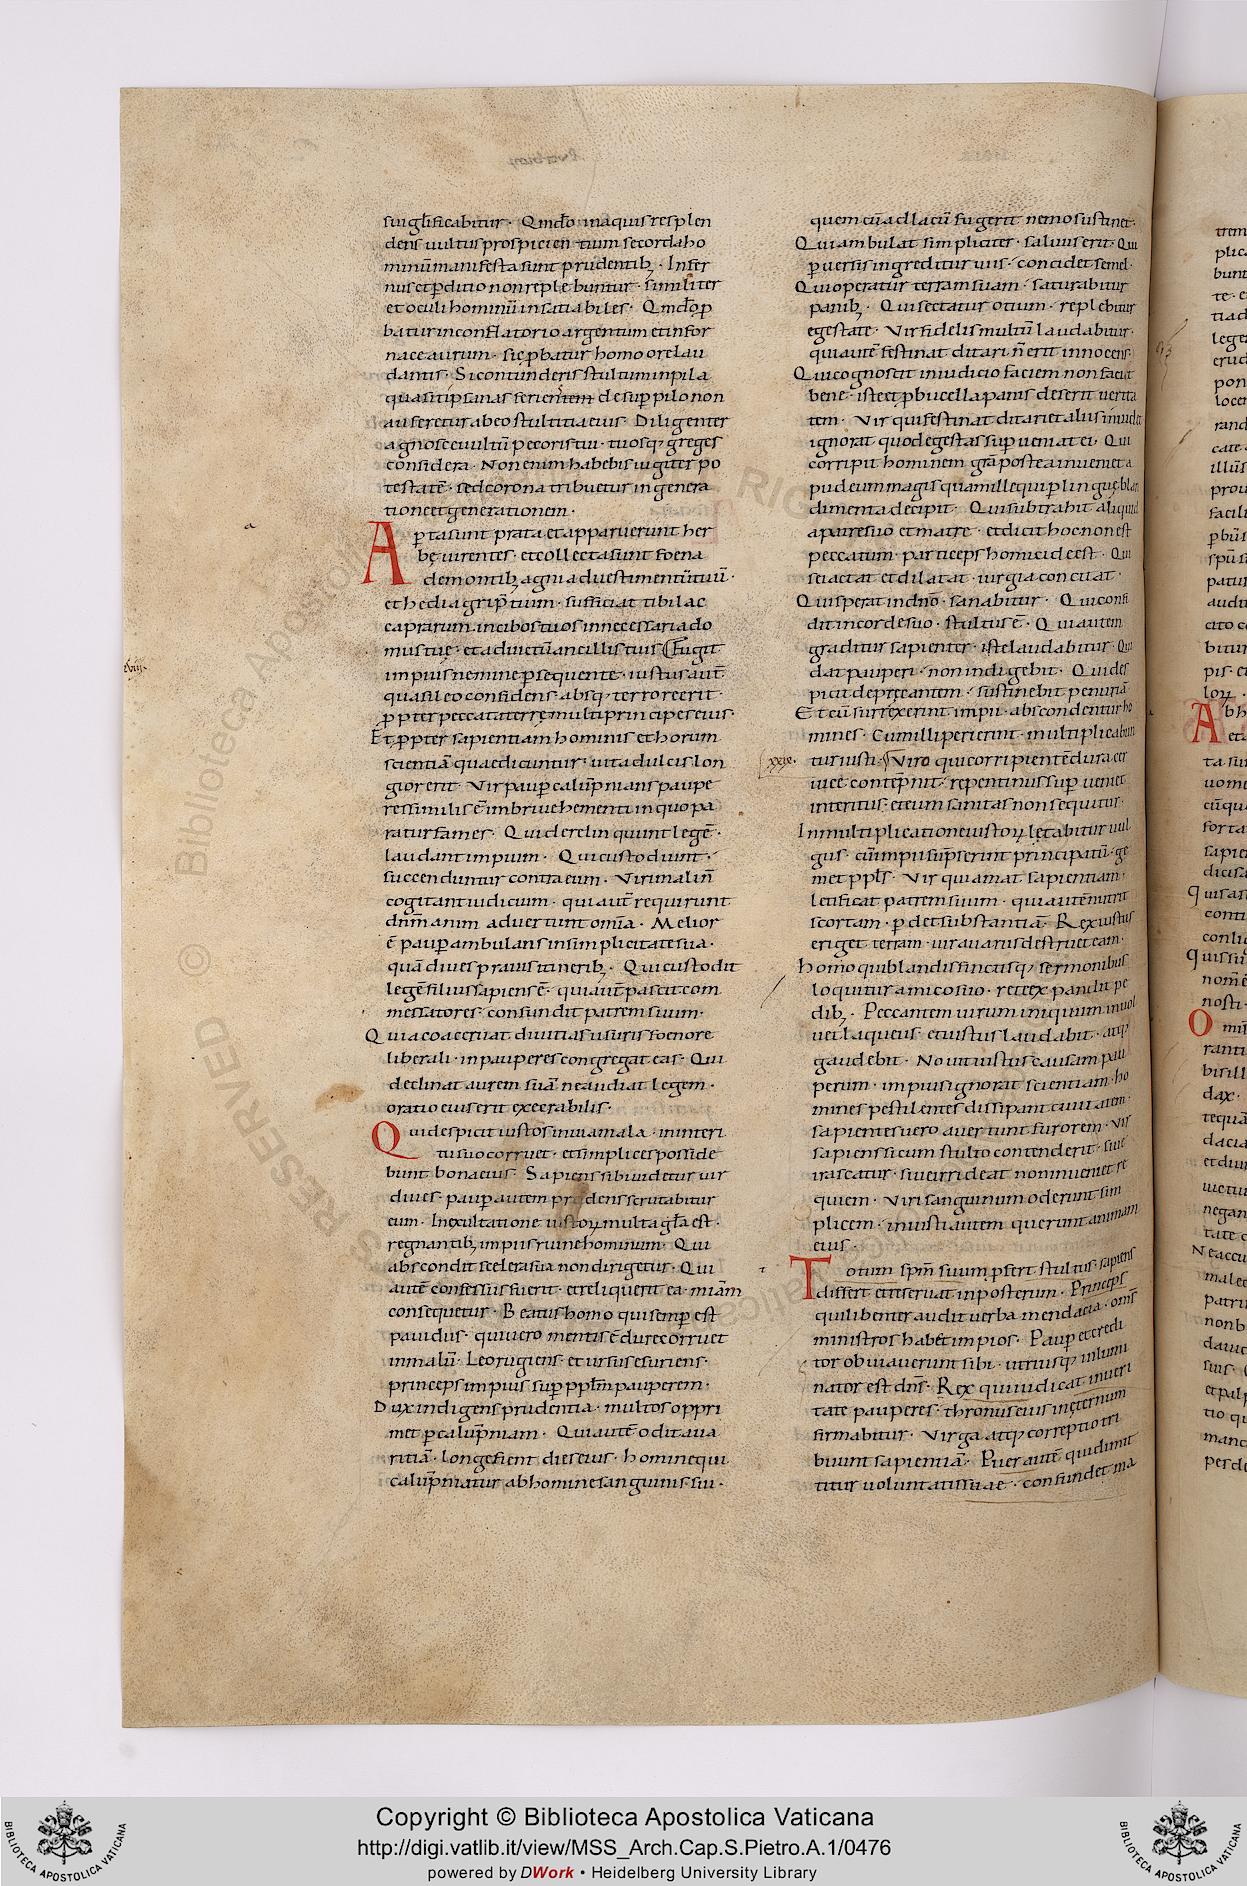 sui glorificabitur · Qmdo in aquis resplen
dent uultus prospicien tium sic corda ho
minū manifesta sunt prudentibꝫ · Infer
nus et pditio non reple buntur · similiter
et oculi hominū insatiabiles · Qmdo p
batur in conflatorio argentum et in for
nace aurum · sic pbatur homo ore lau
dantis · Si contunderis stultum in pila
quasi tipsanas serientem desup pilo non
auferetur ab eo stultitia eius · Diligenter
agnosce uultū pecoris tui · tuosqꝫ greges
considera · Non enim habebis iugiter po
testatē · sed corona tribuetur in genera
tione et generationem ·
Aperta sunt prata et apparuerunt her
bę uirentes · et collecta sunt foena
de montibꝫ agni ad uestimentū tuū ·
et hedi agri p̄tium · sufficiat tibi lac
caprarum in cibos tuos in necessaria do
mus tuę · et ad uictū ancillis tuis Fugit
impius nemine psequente · iustus aut̄
quasi leo confidens absqꝫ terrore erit ·
ppter peccata terrę multi principes eius ·
Et ppter sapientiam hominis et horum
scientiā quae dicuntur · uita ducis lon
gior erit · Vir paup calūpnians paupe
res similis ē imbri uehementi in quo pa
ratur fames · Qui derelinquunt legē ·
laudant impium · Qui custodiunt ·
succenduntur contra eum · Viri mali n̄
cogitant iudicium · qui aut̄ requirunt
dn̄m animaduertunt omīa · Melior
ē paup ambulans in simplicitate sua ·
quā diues prauis itineribꝫ · Qui custodit
legē filius sapiens ē · qui aūt pascit com
messatores · confundit patrem suum ·
Qui coaceruat diuitias usuris foenore
liberali · in pauperes congregat eas · Qui
declinat aurem suā ne audiat legem ·
oratio eius erit execrabilis ·
Qui despicit iustos in uia mala · in interi
tu suo corruet · et simplices posside
bunt bona eius · Sapiens sibi uidetur uir
diues · paup autem prudens scrutabitur
eum · In exultatione iustoꝝ multa gla est ·
regnantibꝫ impiis ruine hominum · Qui
abscondit scelera sua non dirigetur · Qui
autē confessus fuerit · et reliquerit ea · miām
consequetur · Beatus homo qui semp est
pauidus · qui uero mentis ē dure corruet
in malū · Leo rugiens · et ursus esuriens ·
princeps impius sup pplm̄ pauperem ·
Dux indigens prudentia · multos oppri
met p calūpniam · Qui autē odit aua
ritiā · longe fient dies eius · hominē qui
calūpniatur ab homine sanguinis siu ·
quem cū ad lacū fugerit nemo sustinet ·
Qui ambulat simpliciter · saluus erit · Qui
puersis ingreditur uiis · concidet semel ·
Qui operatur terram suam · saturabitur
panibꝫ · Qui sectatur otium · replebitur
egestate · Vir fidelis multū laudabitur ·
qui autē festinat ditari n̄ erit innocens ·
Qui cognoscit in iudicio faciem non facit
bene · iste et p bucella panis deserit uerita
tem · Vir qui festinat ditari et aliis inuidet
ignorat quod egestas sup ueniat ei · Qui
corripit hominem grā postea inueniet a
pud eum magis quam ille qui p linguę blan
dimenta decipit · Qui subtrahit aliquid
a patre suo et matre · et dicit hoc non est
peccatum · particeps homicide est · Qui
se iactat et dilatat · iurgia concitat ·
Qui sperat in dn̄o · sanabitur · Qui confi
dit in corde suo · stultus ē · Qui autem
graditur sapienter · iste laudabitur · Qui
dat pauperi · non indigebit · Qui des
picit deprecantem · sustinebit penuriā
Et cū surrexerint impii · abscondentur ho
mines · Cum illi perierint · multiplicabun
xxix · tur iusti · Viro qui corripientē dura cer
uice contēpnit · repentinus sup ueniet
interitus · et eum sanitas non sequitur ·
In multiplicatione iustoꝝ lętabitur uul
gus · cū impii sūpserint principatū · ge
met ppls · Vir qui amat sapientiam ·
letificat patrem suum · qui autē nutrit
scortam · pdet substantiā · Rex iustus
eriget terram · uir auarus destruet eam ·
homo qui blandis fictisqꝫ sermonibus
loquitur amico suo · rete expandit pe
dibꝫ · Peccantem uirum iniquum inuol
uet laqueus · et iustus laudabit · atqꝫ
gaudebit · Nouit iustus causam pau
perum · impius ignorat scientiam · ho
mines pestilentes dissipant ciuitatem ·
sapientes uero auertunt furorem · Vir
sapiens si cum stulto contenderit · siue
irascatur · siue rideat non inueniet re
quiem · Viri sanguinum oderunt sim
plicem · iusti autem querunt animam
eius ·
Totum spm̄ suum pfert stultus · sapiens
differt et reseruat in posterum · Princeps
qui libenter audit uerba mendacia · oms̄
ministros habēt impios · Paup et credi
tor obuiauerunt sibi · utriusqꝫ inlumi
nator est dn̄s · Rex qui iudicat in ueri
tate pauperes · thronus eius in ęternum
firmabitur · Virga atqꝫ correptio tri
buunt sapientiā · Puer autē qui dimit
titur uoluntati suae · confundet ma
Copyright © Biblioteca Apostolica Vaticana
http://digi.vatlib.it/view/MSS_Arch.Cap.S.Pietro.A.1/0476
powered by DWork • Heidelberg University Library